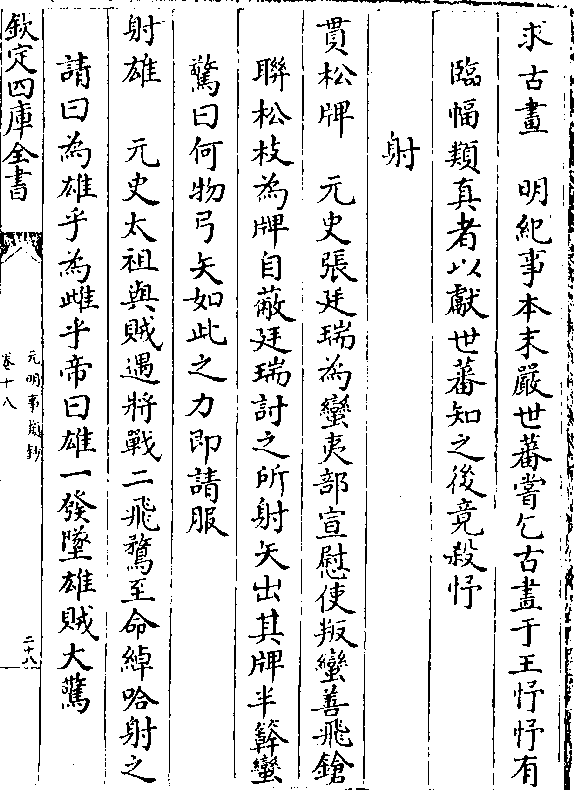 求古畫　明紀事本末嚴世蕃嘗乞古畫于王忬忬有
臨幅類真者以獻世蕃知之後竟殺忬
射
貫松牌　元史張廷瑞為蠻夷部宣慰使叛蠻善飛鎗
聯松枝為牌自蔽廷瑞討之所射矢出其牌半簳蠻
驚曰何物弓矢如此之力即請服
射雄　元史太祖與賊遇將戰二飛鶩至命綽哈射之
請曰為雄乎為雌乎帝曰雄一發墜雄賊大驚
欽定四庫全書
元明事類鈔
卷十八
二十八